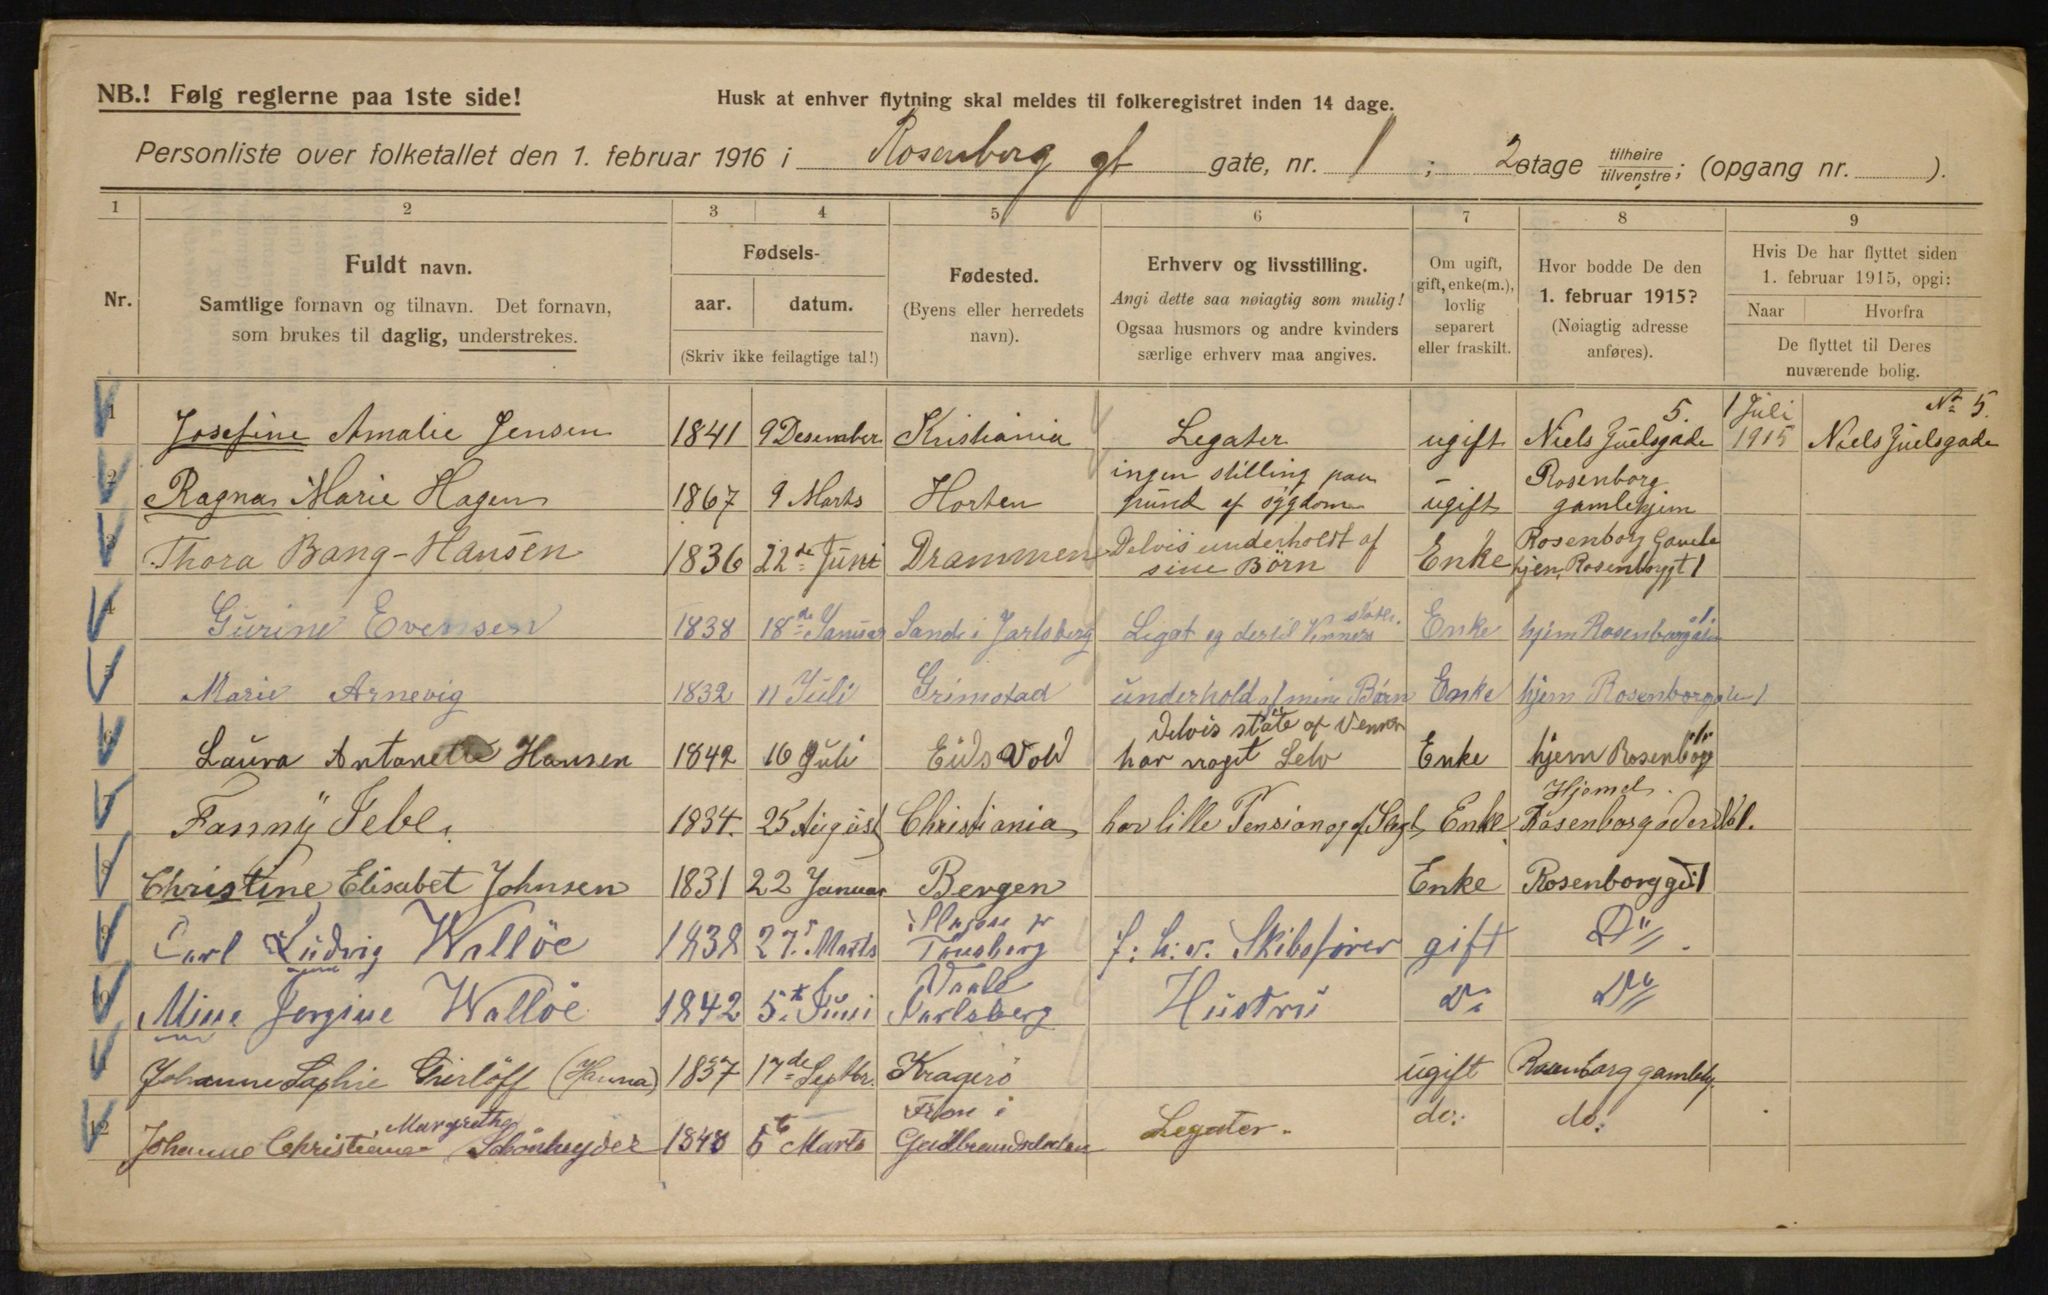 NB.! Følg reglerne paa 1ste side!
Husk at enhver flytning skal meldes til folkeregistret inden 14 dage.
Personliste over folketallet den 1. februar 1916 i Rosenborg gt gate, nr. 1; 2 etage tilhøire/tilvenstre; (opgang nr. ).
1 2 3 4 5 6 7 8 9
Nr.
Fuldt navn.
Samtlige fornavn og tilnavn. Det fornavn,
som brukes til daglig, understrekes.
Fødsels-
aar. datum.
(Skriv ikke feilagtige tal!)
Fødested.
(Byens eller herredets
navn).
Erhverv og livsstilling.
Angi dette saa nøiagtig som mulig!
Ogsaa husmors og andre kvinders
særlige erhverv maa angives.
Om ugift,
gift, enke(m.),
lovlig
separert
eller fraskilt.
Hvor bodde De den
1. februar 1915?
(Nøiagtig adresse
anføres).
Hvis De har flyttet siden
1. februar 1915, opgi:
Naar Hvorfra
De flyttet til Deres
nuværende bolig.
5. 1 Juli No 5.
1 Josefine Amalie Jensen 1841 9 Desember Kristiania Legater ugift Niels Juelsgade 1915 Niels Juelsgade
ingen stilling paa Rosenborg
2 Ragna Marie Hagen 1867 9 Marts Horten grund af sygdom ugift gamlehjem
Delvis underholdt af Rosenborg Gamle
3 Thora Bang-Hansen 1836 22de Juni Drammen sine Børn Enke hjem, Rosenborggt 1
4 Gurine Evensen 1838 18de Januar Sande i Jarlsberg Legat og dertil Venners støtte. Enke hjem Rosenborggaten 1
5 Marie Arnevig 1832 11 Juli Grimstad underhold af mine Børn Enke hjem Rosenborggaten 1
Delvis støtte af Venner
6 Laura Antonette Hansen 1842 16 Juli Eids Vold har noget Selv Enke hjem Rosenborg
Hjemet.
7 Fanny Jebe. 1834. 25 August Christiania har lille Pension og af Legt Enke Rosenborggaden No 1.
8 Christine Elisabet Johnsen 1831 22 Januar Bergen Enke Rosenborggd 1
Slagen pr
9 Carl Ludvig Walløe 1838 27. Marts Tønsberg f. h. v. Skibsfører gift Do
Vaale
10 Mine Jørgine Walløe 1842 5t Juni Jarlsberg Hustru Do Do
Johanne Sophie Gierløff (Hanna) 1837 17de Septbr. Kragerø ugift Rosenborg gamlehj
Margrethe Fron i
12 Johanne Christiane Schönheyder 1848 6t Marts Gudbrandsdalen Legater. do. do.